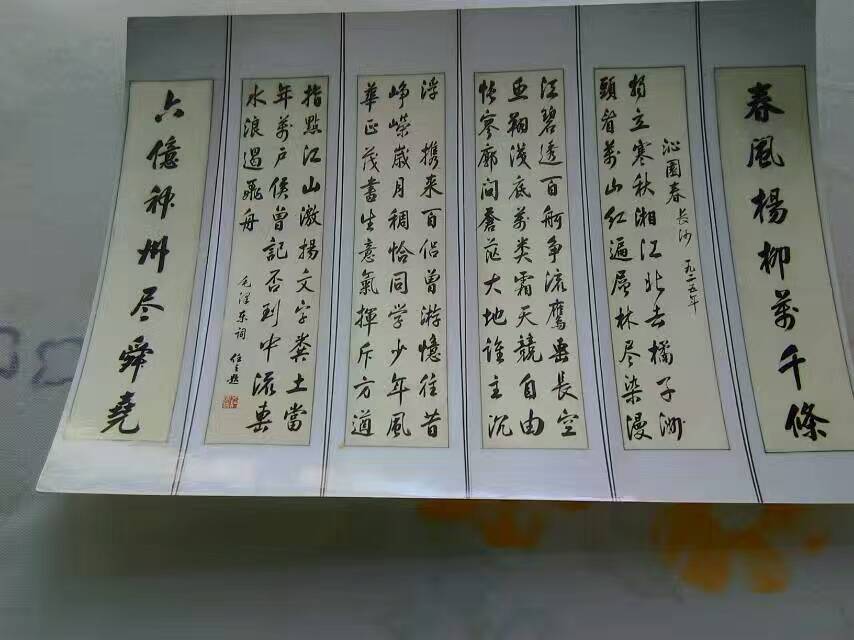 春風楊柳萬千條
沁園春 長沙 一九二五年
独立寒秋湘江北去橘子洲
頭看萬山红遍層林尽染漫
江碧透百舸争流鹰击長空
鱼翔浅底萬类霜天競自由
怅寥廓问蒼茫大地谁主沉
浮 携来百侣曾游憶往昔
峥嵘歲月稠恰同学少年風
華正茂書生意氣揮斥方遒
指點江山激揚文字糞土當
年萬户侯曾記否到中流击
水浪遏飛舟
毛澤东詞
六億神州尽舜堯